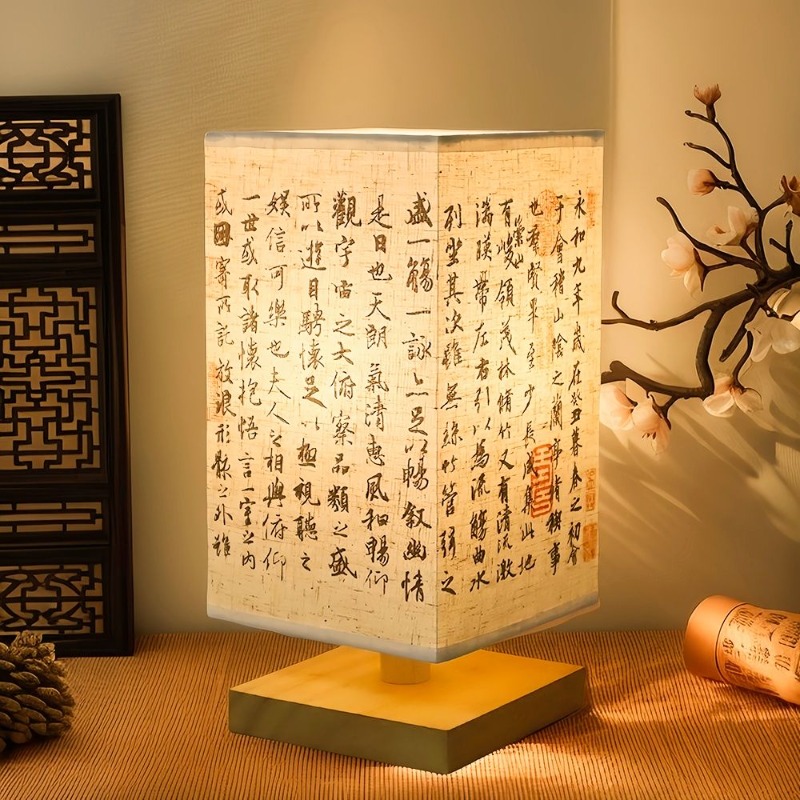 永和九年歲在癸丑暮春之初會
于會稽山陰之蘭亭脩禊事
也群賢畢至少長咸集此地
有崇山峻領茂林脩竹又有清流激
湍暎帶左右引以為流觴曲水
列坐其次雖無絲竹管弦之
盛一觴一詠亦足以暢敘幽情
是日也天朗氣清惠風和暢仰
觀宇宙之大俯察品類之盛
所以遊目騁懷足以極視聽之
娛信可樂也夫人之相與俯仰
一世或取諸懷抱悟言一室之內
或因寄所託放浪形骸之外雖